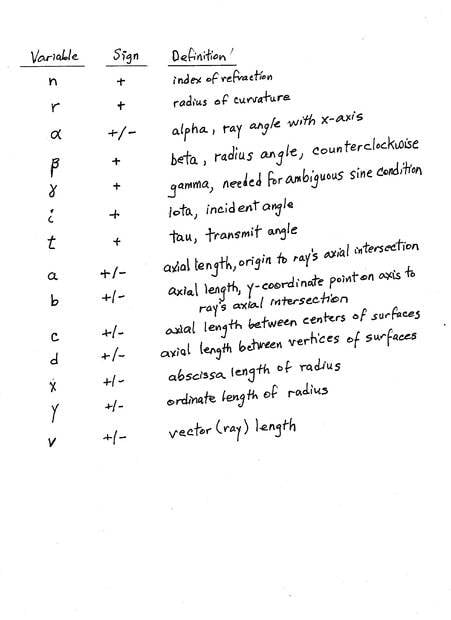 Variable Sign Definition
n + index of refraction
r + radius of curvature
α +/- alpha, ray angle with x-axis
β + beta, radius angle, counterclockwise
γ + gamma, needed for ambiguous sine condition
i + Iota, incident angle
t + tau, transmit angle
a +/- axial length, origin to ray's axial intersection
b +/- axial length, y-coordinate point on axis to
ray's axial intersection
c +/- axial length between centers of surfaces
d +/- axial length between vertices of surfaces
x +/- abscissa length of radius
y +/- ordinate length of radius
v +/- vector (ray) length